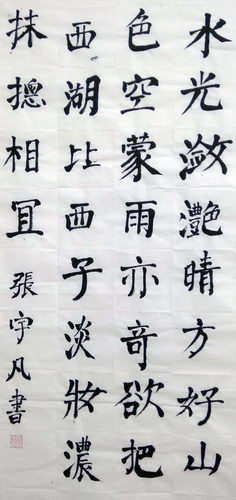 水光潋灧晴方好山
色空蒙雨亦奇欲把
西湖比西子淡妝濃
抹摠相宜張宇凡書